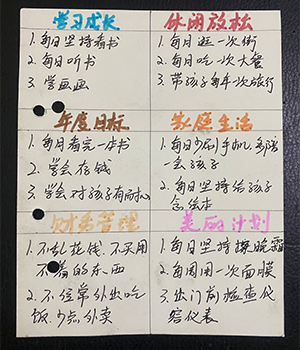 学习成长
1. 每日坚持看书
2. 每日听书
3. 学画画
休闲放松
1. 每月逛一次街
2. 每月吃一次大餐
3. 带孩子每年一次旅行
年度目标
1. 每月看完一本书
2. 学会存钱
3. 学会对孩子有耐心
家庭生活
1. 每日少刷手机多陪
一会孩子
2. 每日坚持给孩子
念绘本
财务管理
1. 不乱花钱.不买用
不着的东西
2. 不经常外出吃
饭.少点外卖
美丽计划
1. 每日坚持擦晚霜
2. 每周用一次面膜
3. 出门前检查仪
容仪表